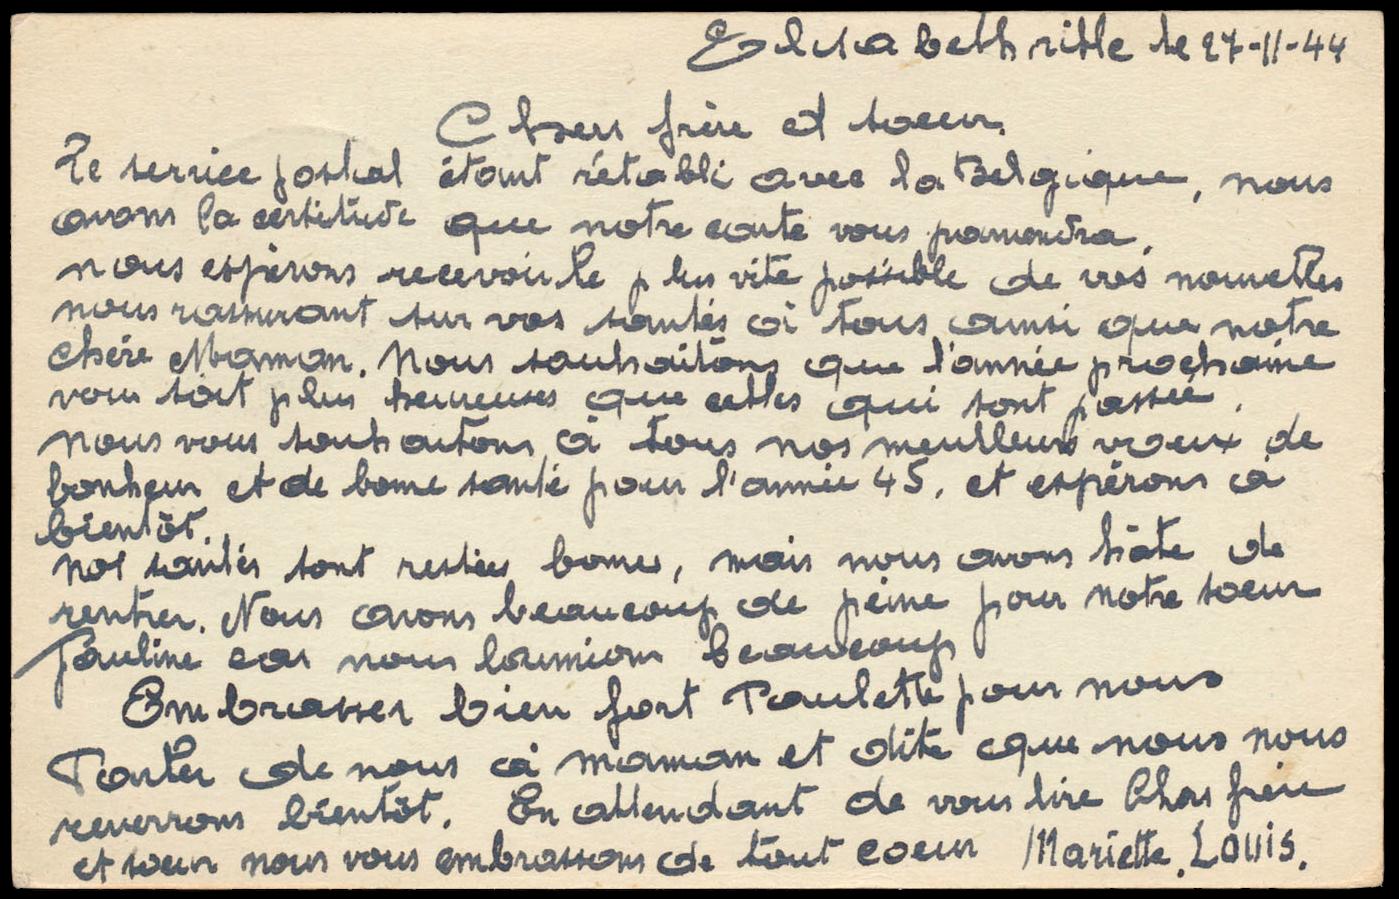 Elisabethville le 27-11-44
Chers frère et soeur,
Le service postal étant rétabli avec la Belgique, nous
avons la certitude que notre carte vous parviendra.
nous espérons recevoir le plus vite possible de vos nouvelles
nous rassurant sur vos santés à tous ainsi que notre
chère Maman. Nous souhaitons que l'année prochaine
vous soit plus heureuses que celles qui sont passée.
Nous vous souhaitons à tous nos meilleurs voeux de
bonheur et de bonne santé pour l'année 45, et espérons à
bientôt.
Nos santés sont restées bonnes, mais nous avons hâte de
rentrer. Nous avons beaucoup de peine pour notre soeur
Pauline car nous beaucoup
Embrasser bien fort Paulette pour nous
Parler de nous à maman et dite que nous nous
reverrons bientôt. En attendant de vous lire Chers frère
et soeur nous vous embrassons de tout coeur Mariette. Louis.